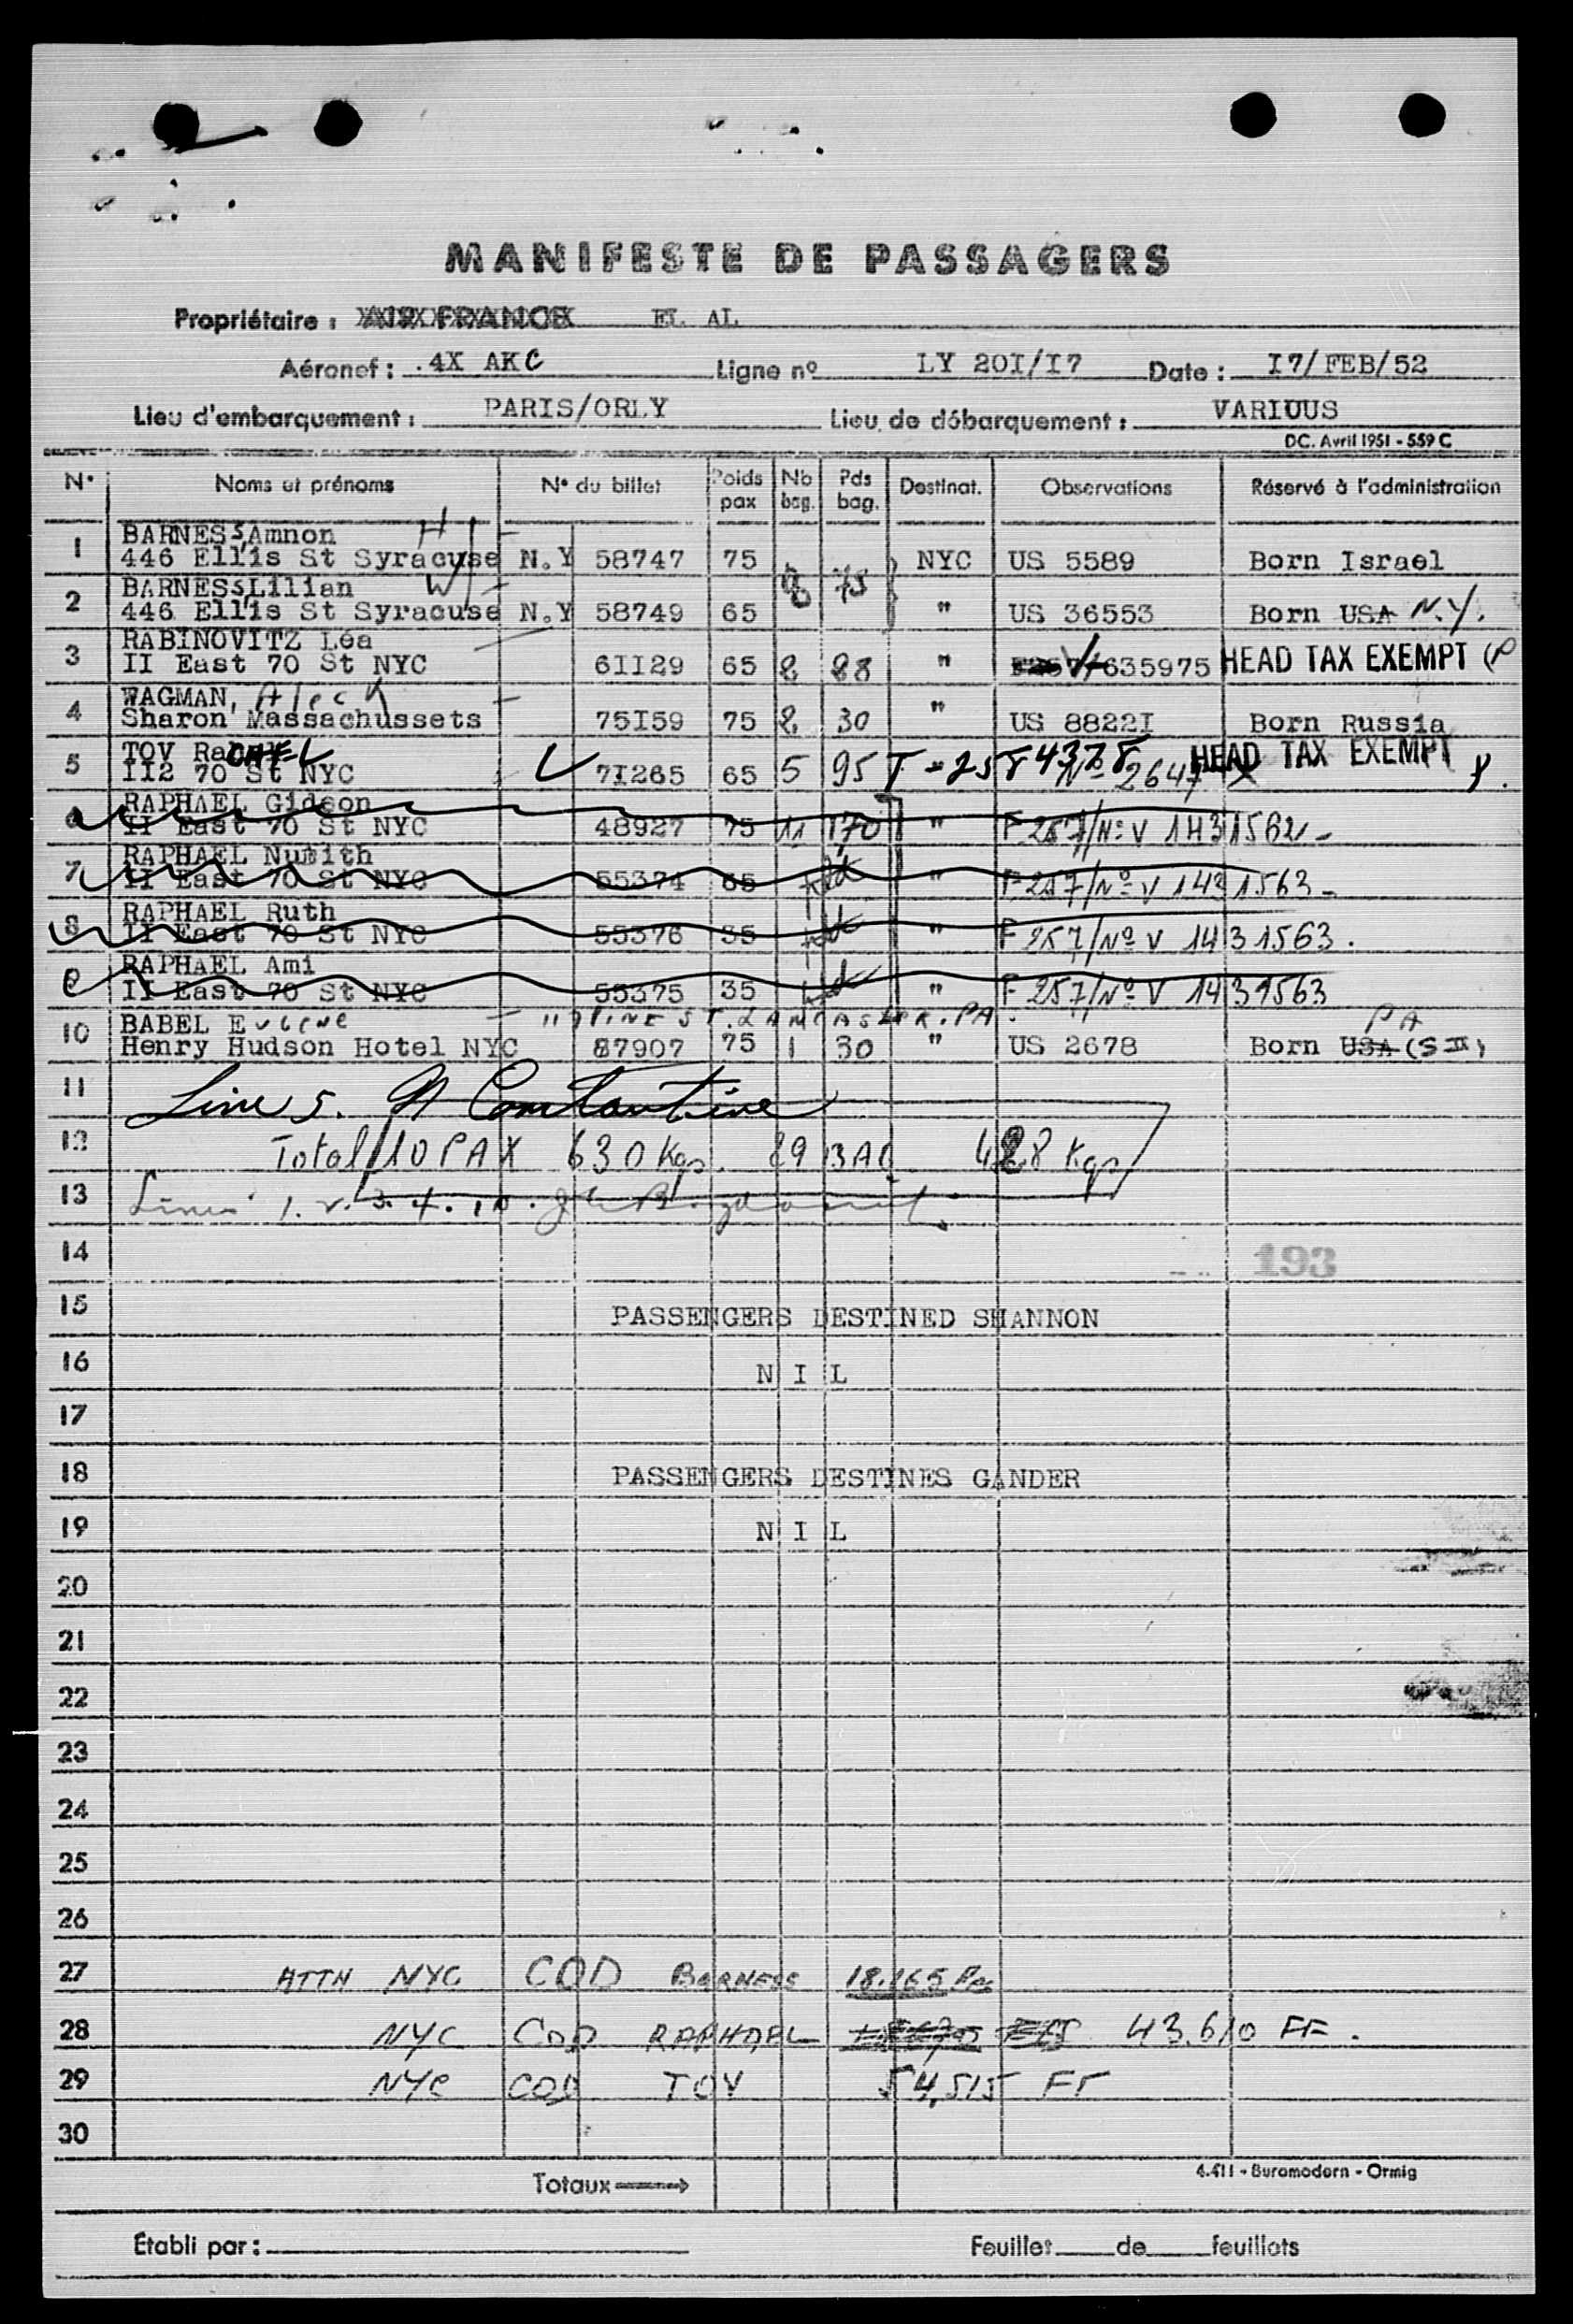 MANIFESTE DE PASSAGERS
Propriétaire : AIR FRANCE EL AL
Aéronef : .4X AKC Ligne nº LY 20I/I7 Date : I7/FEB/52
Lieu d'embarquement : PARIS/ORLY Lieu de débarquement : VARIOUS
DC. Avril 1951 - 559 C
N° Noms et prénoms N° du billet Poids pax Nb bag. Pds bag. Destinat. Observations Réservé à l'administration
1 BARNESS, Amnon H
446 Ellis St Syracuse N.Y 58747 75 8 75 NYC US 5589 Born Israel
2 BARNESS Lilian W
446 Ellis St Syracuse N.Y 58749 65 " US 36553 Born USA N.Y.
3 RABINOVITZ Léa
II East 70 St NYC 6II29 65 2 28 " V 635975 HEAD TAX EXEMPT (P
4 WAGMAN, Aleck
Sharon Massachussets 75I59 75 2 30 " US 8822I Born Russia
5 TOV RaCHEL
II2 70 St NYC 7I265 65 5 95 T-2584378 Nº 2647 HEAD TAX EXEMPT
6 RAPHAEL Gideon
II East 70 St NYC 48927 75 11 170 " F 257/Nº V 1431562
7 RAPHAEL Nurith
II East 70 St NYC 55374 65 " F 257/Nº V 1431563
8 RAPHAEL Ruth
II East 70 St NYC 55376 35 " F 257/Nº V 1431563.
9 RAPHAEL Ami
II East 70 St NYC 55375 35 " F 257/Nº V 1431563
10 BABEL Eugene PINE ST. LANCASTER. PA. PA
Henry Hudson Hotel NYC 87907 75 1 30 " US 2678 Born USA
11 Line 5. Constantine
12 Total 10 PAX 630 Kgs. 29 BAG 428 Kgs
13 Lines 1. 2. 3. 4. 10.
14 193
15 PASSENGERS DESTINED SHANNON
16 N I L
17
18 PASSENGERS DESTINES GANDER
19 N I L
20
21
22
23
24
25
26
27 ATTN NYC COD BARNESS 18.165
28 NYC COD RAPHAEL 43.610 FF.
29 NYC COD TOV 54,515 FF
30
Totaux
4.411 - Buromodern - Ormig
Etabli par : Feuillet de feuillets